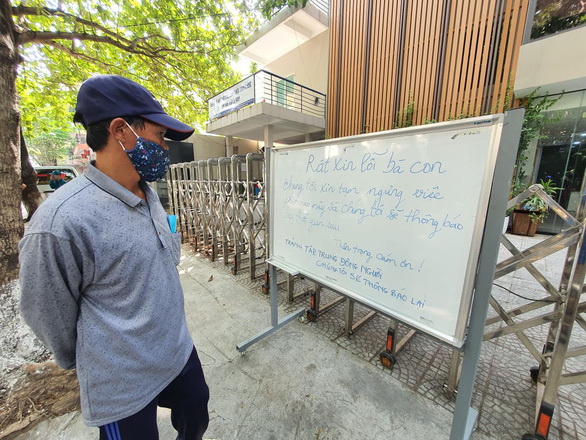 Rất xin lỗi bà con
Chúng tôi xin tạm ngưng việc
này và chúng tôi sẽ thông báo
gian sau
Trân trọng cảm ơn!
TRÁNH TẬP TRUNG ĐÔNG NGƯỜI
CHÚNG TÔI SẼ THÔNG BÁO LẠI